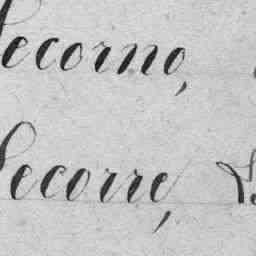 Secorno,
Secorre,